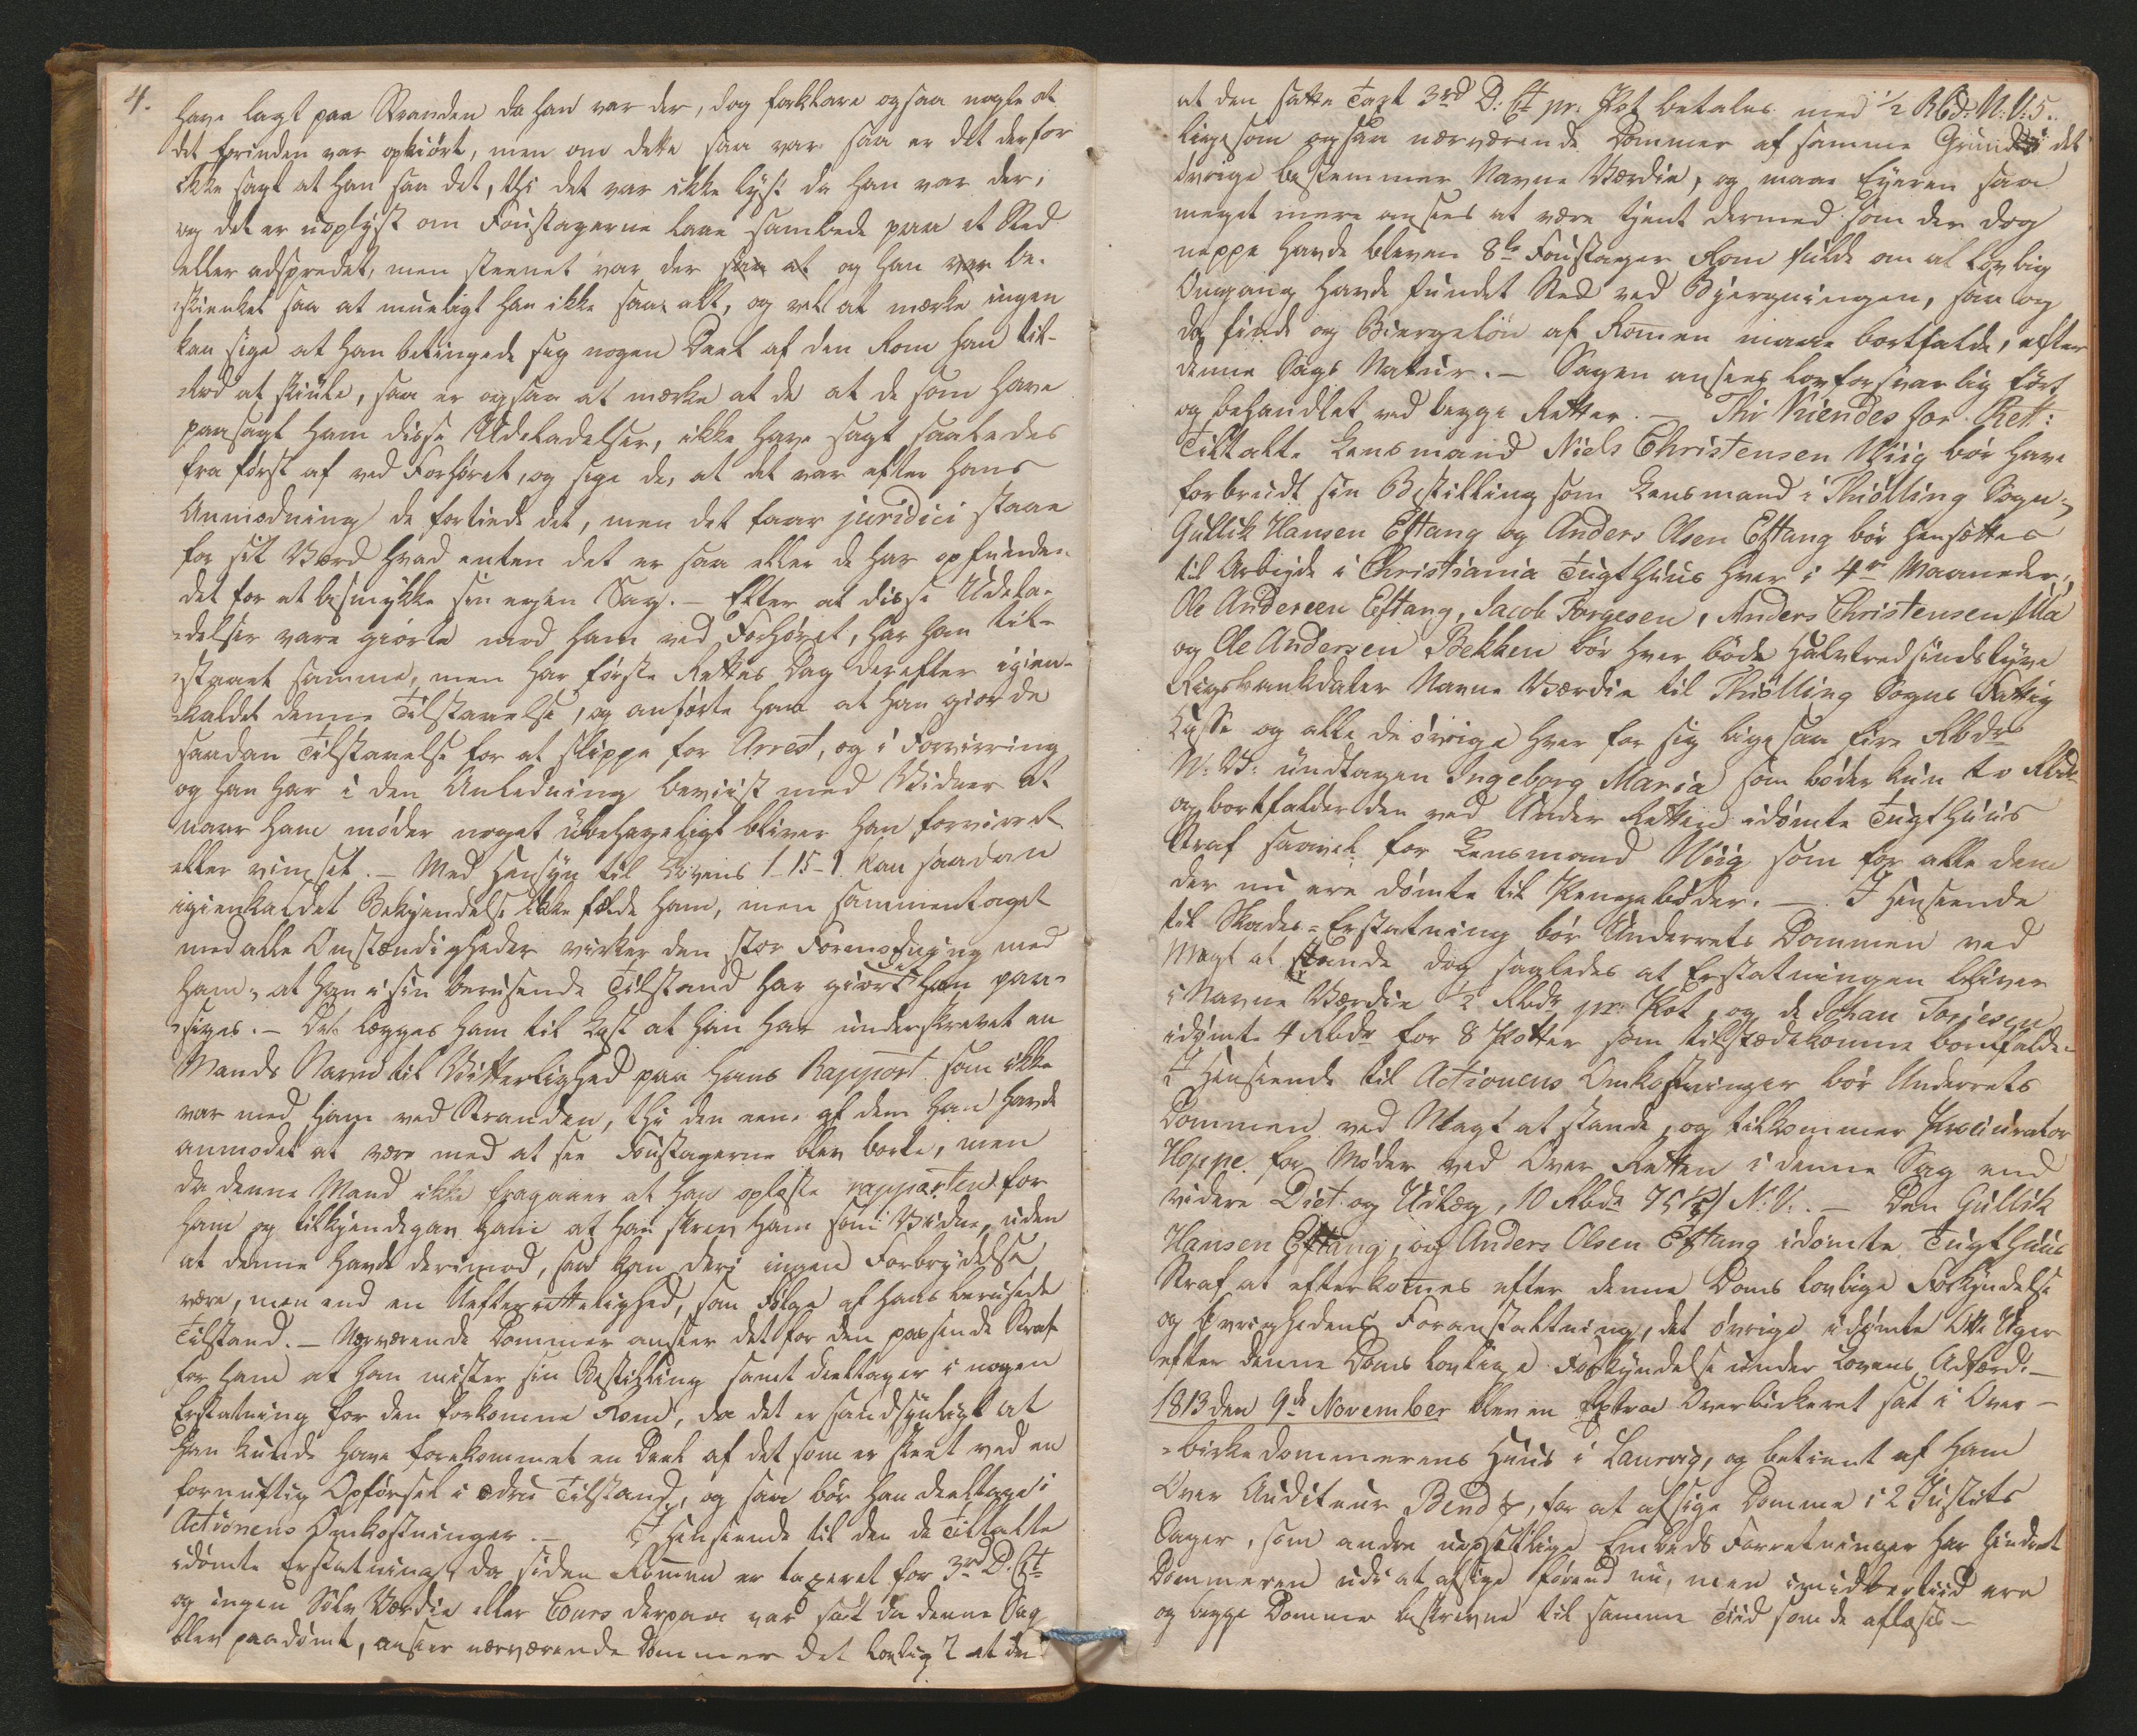 4.
have lagt paa Stranden da han var der, dog forklare ogsaa nogle at
det forinden var opkiört, men om dette saa var saa er det derfor
ikke sagt at han saa det, thi det var ikke lyst da han var der,
og det er uoplyst om Foustagerne laae samlede paa et Sted
eller adspredet, men steenet var der og han var be-
skienket saa at mueligt han ikke saae alt, og vel at mærke ingen
kan sige at han betingede sig nogen Deel af den Rom han til-
lod at skiule, saa er ogsaa at mærke at de at de som have
paasagt ham disse Udeladelser, ikke have sagt saaledes
fra først af ved Forhøret, og sige de, at det var efter hans
Anmodning de fortiede det, men det faar juridici staae
for sit Værd hvad enten det er saa eller de har opfunden
det for at besmykke sin egen Sag. – Efter at disse Udela-
delser vare giorte mod ham ved Forhøret, har han til-
staaet samme, men har første Rettes Dag derefter igien-
kaldet denne Tilstaaelse, og anførte han at han giorde
saadan Tilstaaelse for at slippe for Arrest, og i Forvirring
og han har i den Anledning beviist med Vidner at
naar ham møder noget ubehageligt bliver han forvirret
eller vimset. – Med Hensyn til Lovens 1-15-1. kan saadan
igienkaldet Bekjendelse ikke fælde ham, men sammentaget
med alle Omstændigheder virker den stor Formodning mod
ham, at han i sin berusende Tilstand har giort det ham paa-
siges. – Det lægges ham til Last at han har underskrevet en
Mands Navn til Vitterlighed paa hans Rapport som ikke
var med ham ved Stranden, thi den eene af dem han havde
anmodet at være med at see Foustagerne blev borte, men
da denne Mand ikke fragaaer at han oplæste rapporten for
ham og tilkjendegav ham at han skrev ham som Vidne, uden
at denne havde derimod, saa kan deri ingen Forbrydelse
være, men end en Uefterrettelighed, som Følge af hans berusede
Tilstand. – Nærværende Dommer anseer det for den passende Straf
for ham at han mister sin Bestilling samt deeltager i nogen
Erstatning for den forkomne Rom, da det er sandsynligt at
han kunde have forekommet en Deel af det som er skeet ved en
fornuftig Opførsel i ædru Tilstand, og saa bør han deeltage i
Actionens Omkostninger. – I Henseende til den de Tiltalte
idömte Erstatning, da siden Rommen er taxeret for 3rd D: Ct
og ingen Sölv Værdie eller Cours derpaa var sat da denne Sag
blev paadømt, anseer nærværende Dommer det lovligt at den
at den satte Taxt 3rd D: Ct pr. Pot betales med ½ Rbd: N: V:
ligesom ogsaa nærværende Dommer af samme Grund i det
øvrige bestemmer Navne Værdie, og maae Eyeren saa
meget mere ansees at være tjent dermed som der dog
neppe havde bleven 8te Foustager Rom fulde om al lovlig
Omgang havde fundet Sted ved Bjergningen, saa og
da Find og Biergelön af Rommen maae bortfalde, efter
denne Sags Natur. – Sagen ansees lovforsvarlig fört
og behandlet ved begge Retter. – Thi Kiendes for Ret:
Tiltalte Lensmand Niels Christensen Wiig bör have
forbrudt sin Bestilling som Lensmand i Thiölling Sogn,
Gullik Hansen Eftang og Anders Olsen Eftang bör hensættes
til Arbejde i Christiania Tugthuus hver i 4re Maaneder,
Ole Andersen Eftang, Jacob Torgesen, Anders Christensen Ula
og Ole Andersen Bekken bör hver böde halvtredsindstyve
Rigsbankdaler Navne Værdie til Thiölling Sogns Fattig
Casse og alle de övrige hver for sig ligesaa fire Rbdr
N: V: undtagen Ingeborg Maria som böder kun to Rbdr
og bortfalder den ved Under Retten idömte Tugthuus
Straf saavel for Lensmand Wiig som for alle dem
der nu ere dömte til Pengeböder. – I Henseende
til Skades-Erstatning bör Underrets Dommen ved
Magt at stande dog saaledes at Erstatningen bliver
i Navne Værdie ½ Rbdr pr. Pot, og de Johan Torjesen
idömte 4 Rbdr for 8 Potter som tilstædekomne bortfalde.
I Henseende til Actionens Omkostninger bör Underrets
Dommen ved Magt at stande, og tilkommer Procurator
Hoppe for Möder ved Over Retten i denne Sag end
videre Diet og Udlæg, 10 Rbdr 75 N: V: – Den Gullik
Hansen Eftang, og Anders Olsen Eftang idömte Tugthuus
Straf at efterkomes efter denne Doms lovlige Forkyndelse
og Övrighedens Foranstaltning, det övrige idömte Otte Uger
efter denne Doms lovlige Forkyndelse under Lovens Adfærd. –
1813 den 9de November blev en Extra Overbirkeret sat i Over-
birkedommerens Huus i Laurvig, og betient af ham
Over Auditeur Bendz, for at afsige Domme i 2 Justits
Sager, som andre uopsettlige Embeds Forretninger har hindret
Dommeren udi at afsige förend nu, men imidlertiid ere
og begge Domme beskrevne til samme Tiid som de aflæses –